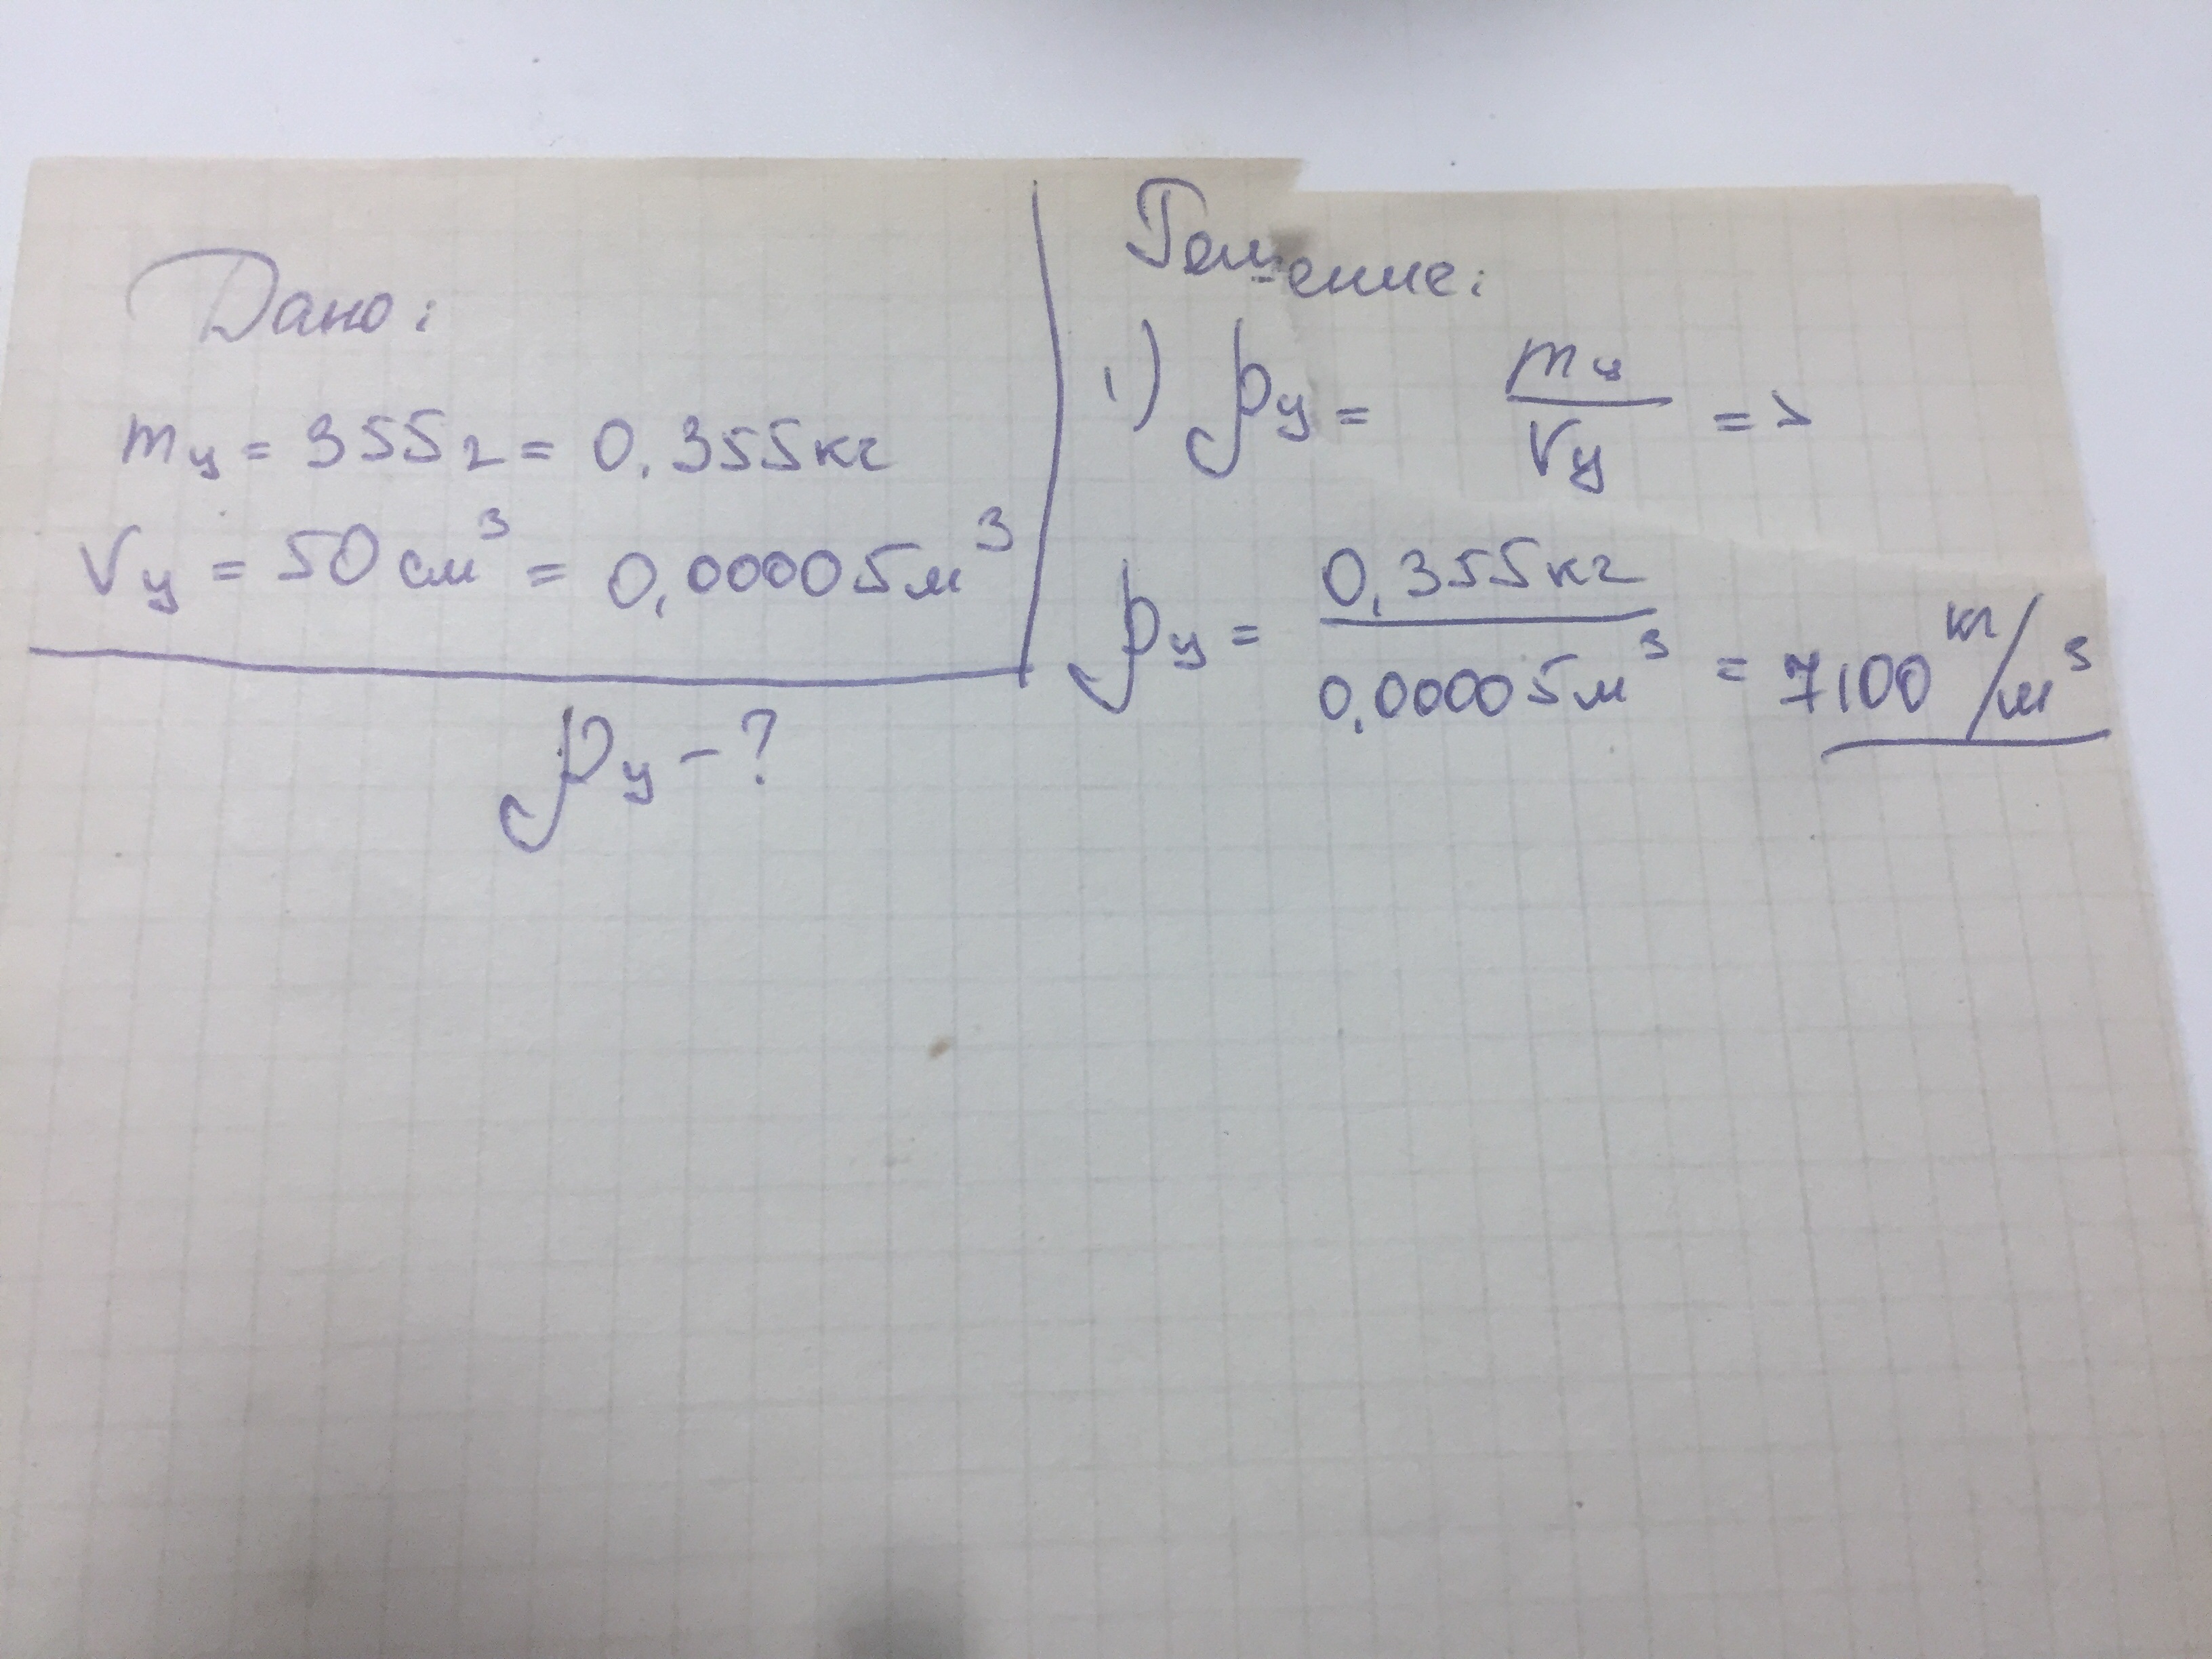 Дано:
mц = 355 г = 0,355 кг
Vц = 50 см³ = 0,00005 м³
ρц - ?
Решение:
1) ρц = mц / Vц =>
ρц = 0,355 кг / 0,00005 м³ = 7100 кг/м³